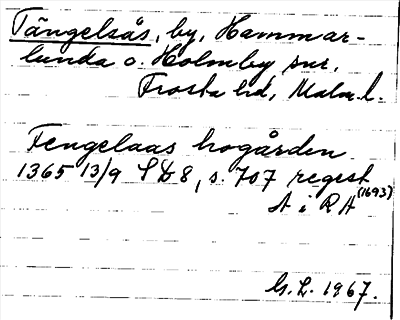 Tängelsås, by, Hammar-
lunda o. Holmby snr,
Frosta hd, Malm. l.
Tengelaas hogården
1365 13/9 SD 8, s. 707 regest
A i RA (1693)
G. L. 1967.